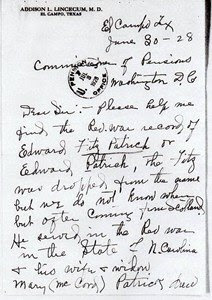 ADDISON L. LINCECUM, M. D.
EL CAMPO, TEXAS
El Campo Tx
June 30-28
Commissioner of Pensions
Washington D.C
Dear Sir:- Please help me
find the Rev. war record of
Edward Fitz Patrick or
Edward Patrick, the Fitz
was dropped from the name
but we do not know when
but often coming from Scotland.
He served in the Rev war
in the State of N. Carolina
& his wife & widow
Mary (Mc Cord) Patrick